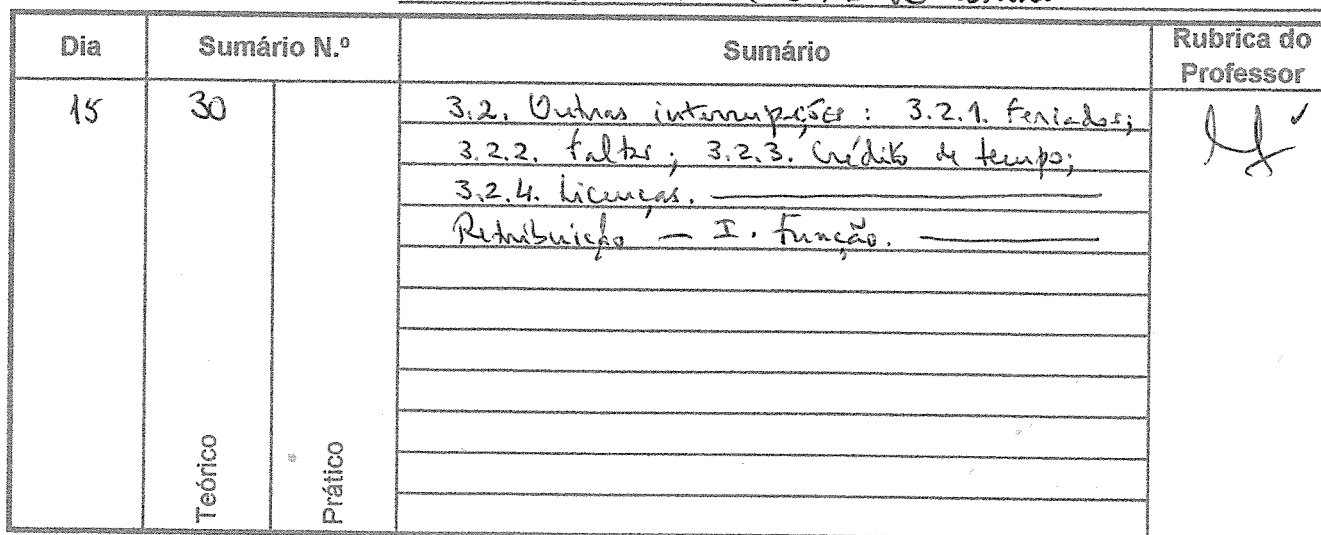 Dia Sumário N.º Sumário Rubrica do Professor
15 30 3.2. Outras interrupções : 3.2.1. Feriados;
3.2.2. Faltas; 3.2.3. Crédito de tempo;
3.2.4. Licenças.
Retribuição — I. Função.
Teórico
Prático